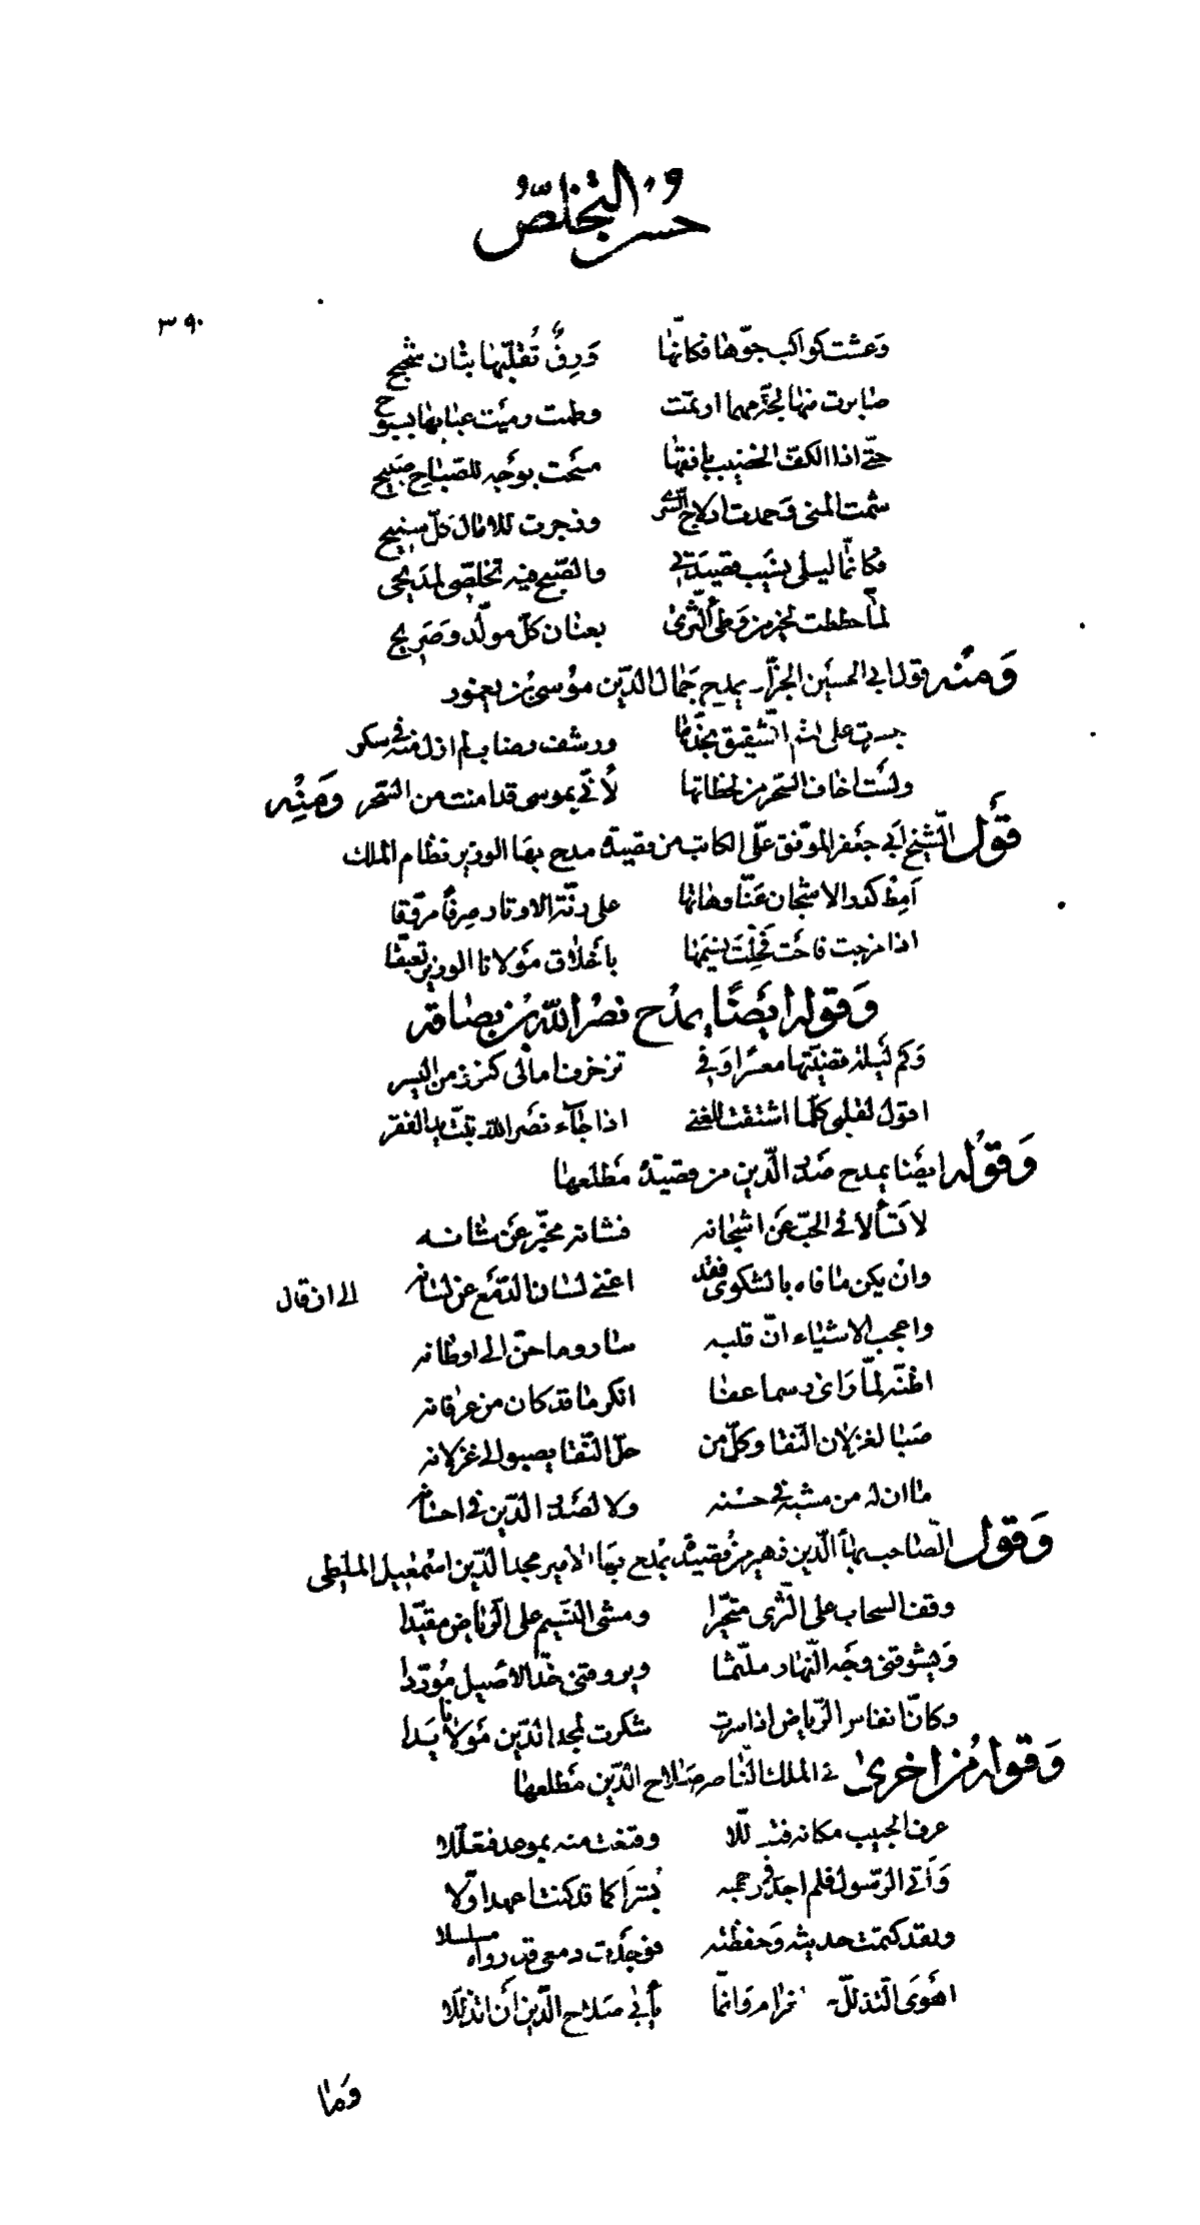 حُسن التخلّصُ
٣٩٠
وَعشت كواكب جوّها فكانّها ورقٌ تُقلّبها بثان شحيح
صابرت منها لجّة مهما ارتمت وطمت رميت عبابها بسبوح
حتّى اذا الكفّ الخضيب بافقها مسَحت بوجه للصّباح صبيح
شمت المنى وَحمدت ادلاج السّرى وزجرت للامال كلّ سنيح
فكانّما ليلى نسيب قصيدتى والصّبح فيه تخلّصى لمديحى
لمّا حططت لخير من وَطئ الثّرى بعنان كلّ مولّد وصَريح
وَمنُه قول ابى الحسَين الجزّار يمدح جَمال الدّين موُسى بْن يغمُور
جسرت على لثم الشّقيق بخدّها ورشف رضاب لم ازل منه فى سكر
ولسَت اخاف السّحر من لحظاتها لأنّى بموسى قد امنت من السّحر وَمنِْه
قَوَل الشّيخ ابَى جعَفر الموفّق علّى الكاتب من قصيدة مدح بها الوزير نظام الملك
اَمِط كدر الاشجان عَنّا وهاتها على رنّة الاوتار صِرفاً مروّقا
اذا مزجت فاحَت فَخِلْتَ نسيمَها باخَلاق موَلانا الوزير تعبّقا
وَقوله ايَضًا يمدُح نصُر الله بْن بصاقه
وَكم ليَلة قضيّتها معسرًا وَفى تزخرف امالى كنوز من اليسر
اقول لقلبى كلّما اشتقت للغنى اذا جآء نصَر الله تبّت يد الفقر
وَقوُله ايضَا يمدح صَدر الدّين من قصيدة مَطلعها
لا تسَألا فى الحبّ عَن اشجانه فشانه مخبّر عَن شانه
وان يكن ما فاه بالشكوى فقد اغنى لسان الدّمَع عن لسانه الى ان قال
واعجب الاشياء انّ قلبه سار وما حنّ الى اوطانه
اظنّه لمّا رَاى رسما عفا انكر ما قد كان من عرفانه
صَبا لغزلان النّقا وكلّ من حلّ النّقا يصبو الى غزلانه
ما ان له من مشبه فى حسنه ولا لصَدر الدّين فى احسانه
وَقول الصّاحب بهاَ الدّين زهير من قصيدة يمْدح بها الامير مجد الدّين اسْمعيل الملطى
وقف السحاب على الثّرى متحيّرا ومشى النّسيم على الرّياض مقيّدا
وَيشوقنى وجَه النّهار ملثّما ويروقنى خدّ الاصَيل مُورّدا
وكانّ انفاس الرّياض اذا سرت شكرت لمجد الدّين موَلانا يَدا
وَقوله مْن اخرىٰ فى الملك النّاصر صلاح الدّين مَطلعها
عرف الحبيب مكانه فتدلّلا وقنعت منه بموعد فتعلّلا
وَاَتى الرّسول فلم اجد فى وجهه بُشرًا كما قد كنت اعهد اوّلا
ولقد كتمت حديثه وَحفظته فوجَدت دمعى قد رواه مسلسلا
اهَوَى التّذلّل غراما وَانّما يأبى صَلاح الدّين أن اتذلّلا
وَمَا